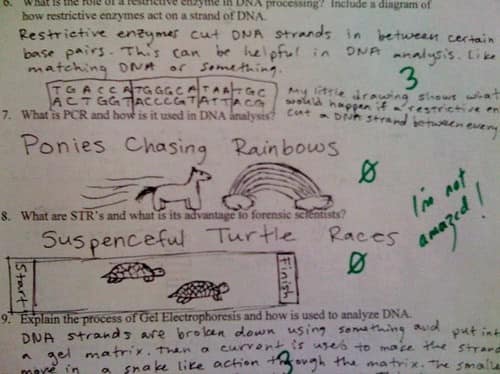 6. What is the role of a restrictive enzyme in DNA processing? Include a diagram of
how restrictive enzymes act on a strand of DNA.
Restrictive enzymes cut DNA strands in between certain
base pairs. This can be helpful in DNA analysis. Like
matching DNA or something.
3
TGACCA TGGGCA TAA TGC
ACTGGT ACCCGT ATT ACG
My little drawing shows what
would happen if a restrictive en
cut a DNA strand between every
7. What is PCR and how is it used in DNA analysis?
Ponies Chasing Rainbows
0
I'm not
amazed!
8. What are STR's and what is its advantage to forensic scientists?
Suspenceful Turtle Races
0
Start
Finish
9. Explain the process of Gel Electrophoresis and how is used to analyze DNA.
DNA strands are broken down using something and put into
a gel matrix. Then a current is used to make the strands
move in a snake like action through the matrix. The smalle
3